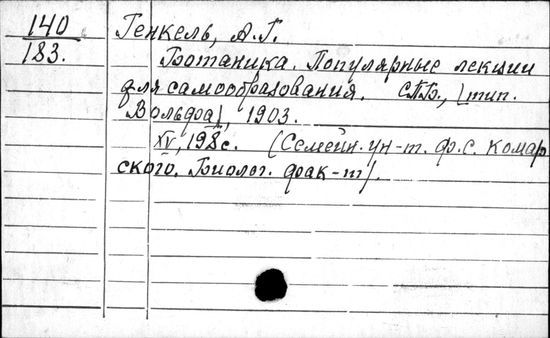 140
183.
Генкель, А.Г.
Ботаника. Популярные лекции
для самообразования. СПБ., [тип.
Вольфа], 1903.
XV, 198 с. (Семейн. ун-т. Ф.С. Комар
ского. Биолог. фак-т).